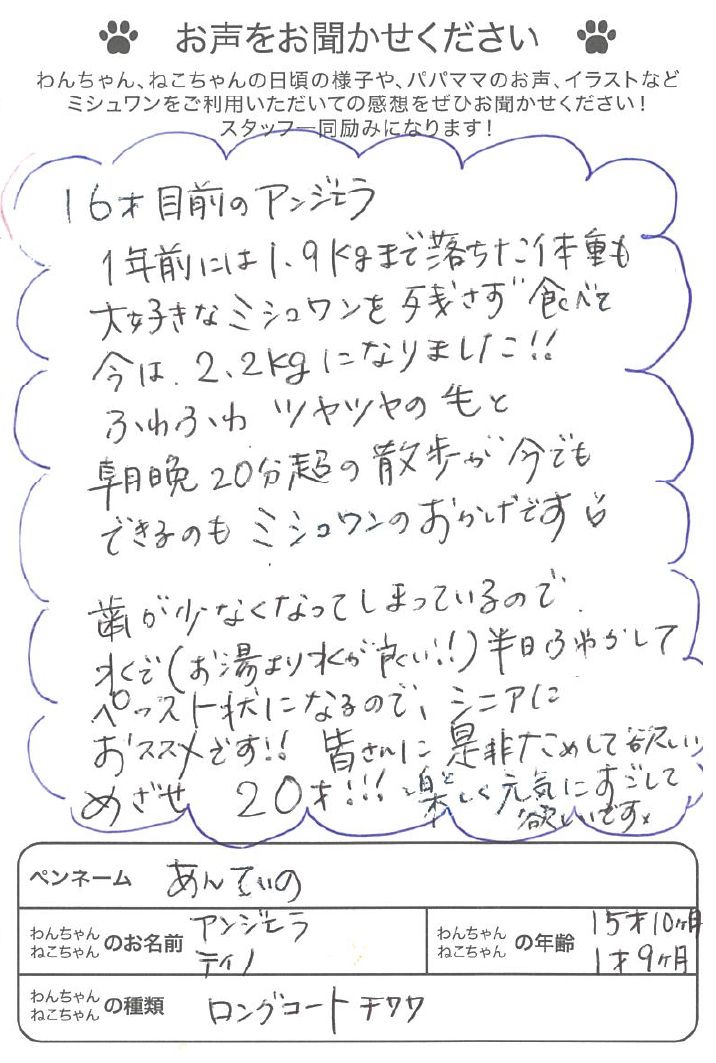 お声をお聞かせください
わんちゃん、ねこちゃんの日頃の様子や、パパママのお声、イラストなど
ミシュワンをご利用いただいての感想をぜひお聞かせください！
スタッフ一同励みになります！
16才目前のアンジェラ
1年前には1.9kgまで落ちた体重も
大好きなミシュワンを残さず食べて
今は、2.2kgになりました!!
ふわふわ ツヤツヤの毛と
朝晩20分超の散歩が今でも
できるのもミシュワンのおかげです
歯が少なくなってしまっているので、
水で(お湯より水が良い!!)半日ふやかして
ペースト状になるので、シニアに
おススメです!! 皆さんに是非ためして欲しい
めざせ 20才!!! 楽しく元気にすごして
欲しいです
ペンネーム あんてぃの
わんちゃん ねこちゃん のお名前 アンジェラ ティノ
わんちゃん ねこちゃん の年齢 15才10ヶ月 1才9ヶ月
わんちゃん ねこちゃん の種類 ロングコートチワワ